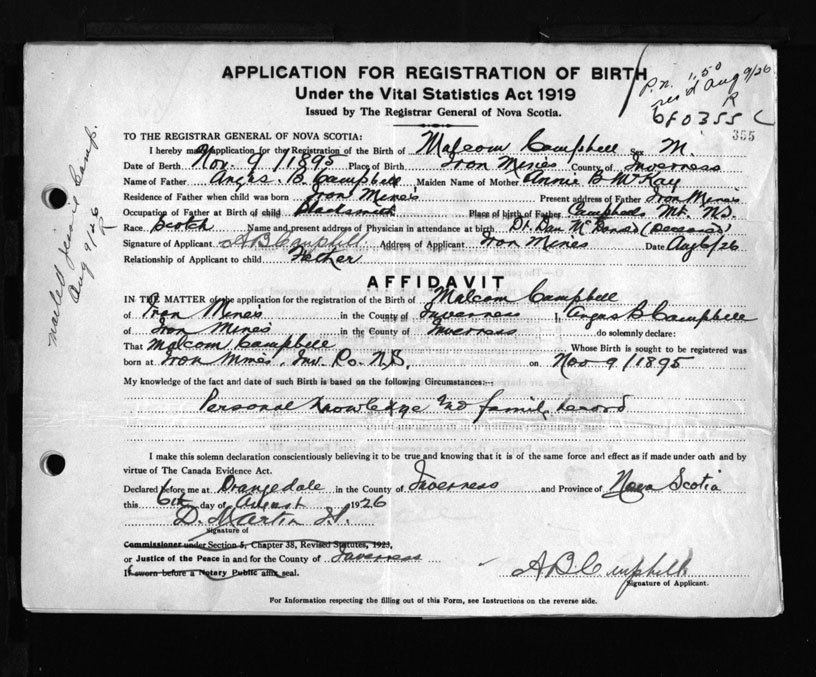 APPLICATION FOR REGISTRATION OF BIRTH
Under the Vital Statistics Act 1919
Issued by The Registrar General of Nova Scotia.
P.N. 1.50
rec'd Aug 9/26
R
355
TO THE REGISTRAR GENERAL OF NOVA SCOTIA:
I hereby make application for the Registration of the Birth of Malcom Campbell Sex M
Date of Birth Nov. 9/1895 Place of Birth Iron Mines County of Inverness
Name of Father Angus B. Campbell Maiden Name of Mother Annie B McKay
Residence of Father when child was born Iron Mines Present address of Father Iron Mines
Occupation of Father at Birth of child Blacksmith Place of birth of Father Campbells Mt. N.S.
Race Scotch Name and present address of Physician in attendance at birth Dr. Dan McDonald (Deceased)
Signature of Applicant A B Campbell Address of Applicant Iron Mines Date Aug 6/26
Relationship of Applicant to child Father
mailed Jessie Camp.
Aug 9/26
R
AFFIDAVIT
IN THE MATTER of the application for the registration of the Birth of Malcom Campbell
of Iron Mines in the County of Inverness I, Angus B Campbell
of Iron Mines in the County of Inverness do solemnly declare:
That Malcom Campbell Whose Birth is sought to be registered was
born at Iron Mines, Inv. Co. N.S. on Nov 9/1895
My knowledge of the fact and date of such Birth is based on the following Circumstances:—
Personal Knowledge and family record
I make this solemn declaration conscientiously believing it to be true and knowing that it is of the same force and effect as if made under oath and by
virtue of The Canada Evidence Act.
Declared before me at Orangedale in the County of Inverness and Province of Nova Scotia
this 6th day of August 1926
D. Martin J.P.
Signature of
Commissioner under Section 5, Chapter 38, Revised Statutes, 1923,
or Justice of the Peace in and for the County of Inverness
If sworn before a Notary Public affix seal.
A B Campbell
Signature of Applicant.
For Information respecting the filling out of this Form, see Instructions on the reverse side.